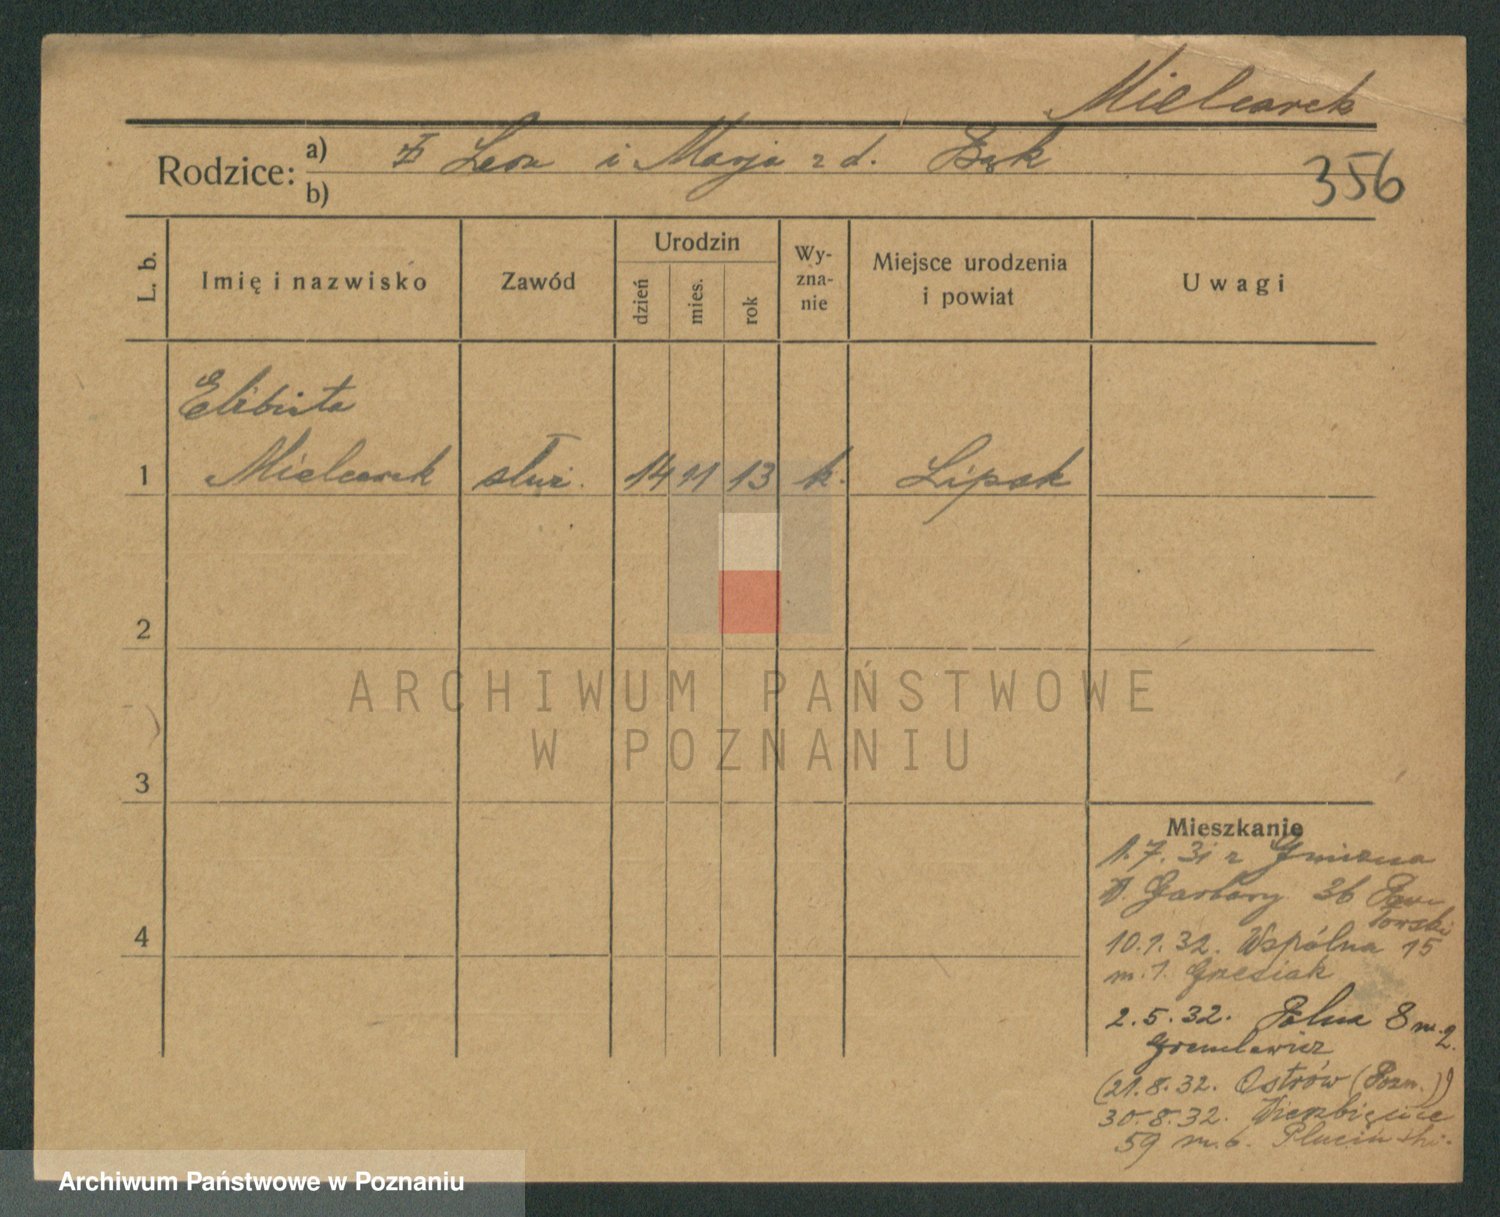 Mielcarek
Rodzice: a) Leon i Marja z d. Bąk
b)
356
L. b.
Imię i nazwisko
Zawód
Urodzin
dzień
mies.
rok
Wy-
zna-
nie
Miejsce urodzenia
i powiat
Uwagi
Elżbieta
1 Mielcarek służ. 14 11 13 k. Lipsk
2
ARCHIWUM PAŃSTWOWE
W POZNANIU
3
4
Mieszkanie
1.7.31 z Gniezna
Garbary 36
10.1.32. Wspólna 15
m. 1. Grzesiak
2.5.32. Polna 8 m. 2.
(21.8.32. Ostrów (Pozn.))
30.8.32. Wierzbięcice
59 m. 6. Pluciński.
Archiwum Państwowe w Poznaniu